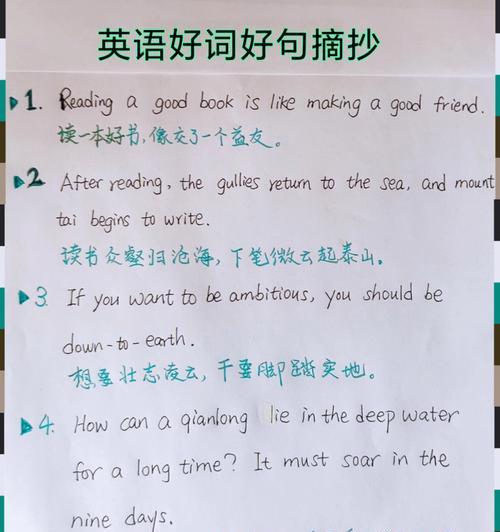 英语好词好句摘抄
1. Reading a good book is like making a good friend.
读一本好书,像交了一个益友。
2 After reading, the gullies return to the sea, and mount
tai begins to write.
读书众壑归沧海,下笔微云起泰山。
3. If you want to be ambitious, you should be
down-to-earth.
想要壮志凌云,干要脚踏实地。
4. How can a qianlong lie in the deep water
for a long time? It must soar in the
nine days.